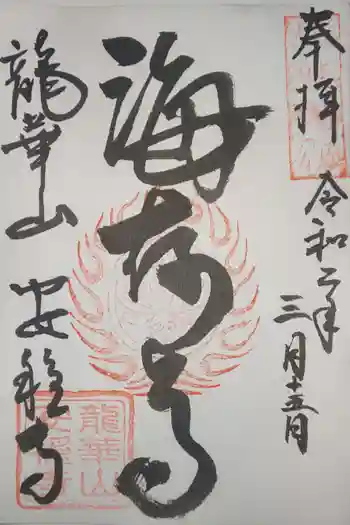 奉拝
令和二年
三月十五日
海
龍華山 安穏寺
龍華山
安穏寺